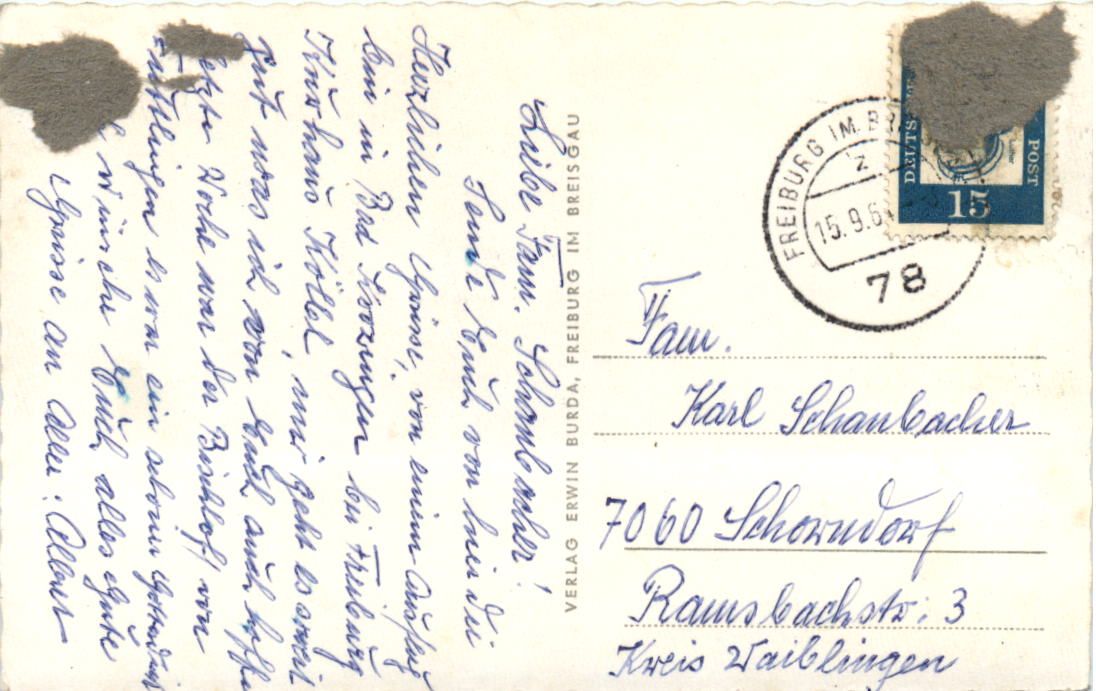 Liebe Fam. Schaubacher!
Sende Euch von hier die
Herzlichen Grüsse, von einem Ausflug
bin in Bad Krozingen bei Freiburg
Kurhaus Köllel, mir geht es soweit
gut was ich von Euch auch hoffe
letzte Woche war der Bischof, von
es war ein schöner Gottesdienst
wünsche Euch alles Gute
Grüsse an Alle: Albert
VERLAG ERWIN BURDA, FREIBURG IM BREISGAU
FREIBURG IM BR
15.9.6
78
DEUTS
POST
15
Fam.
Karl Schaubacher
7060 Schorndorf
Ramsbachstr: 3
Kreis Waiblingen